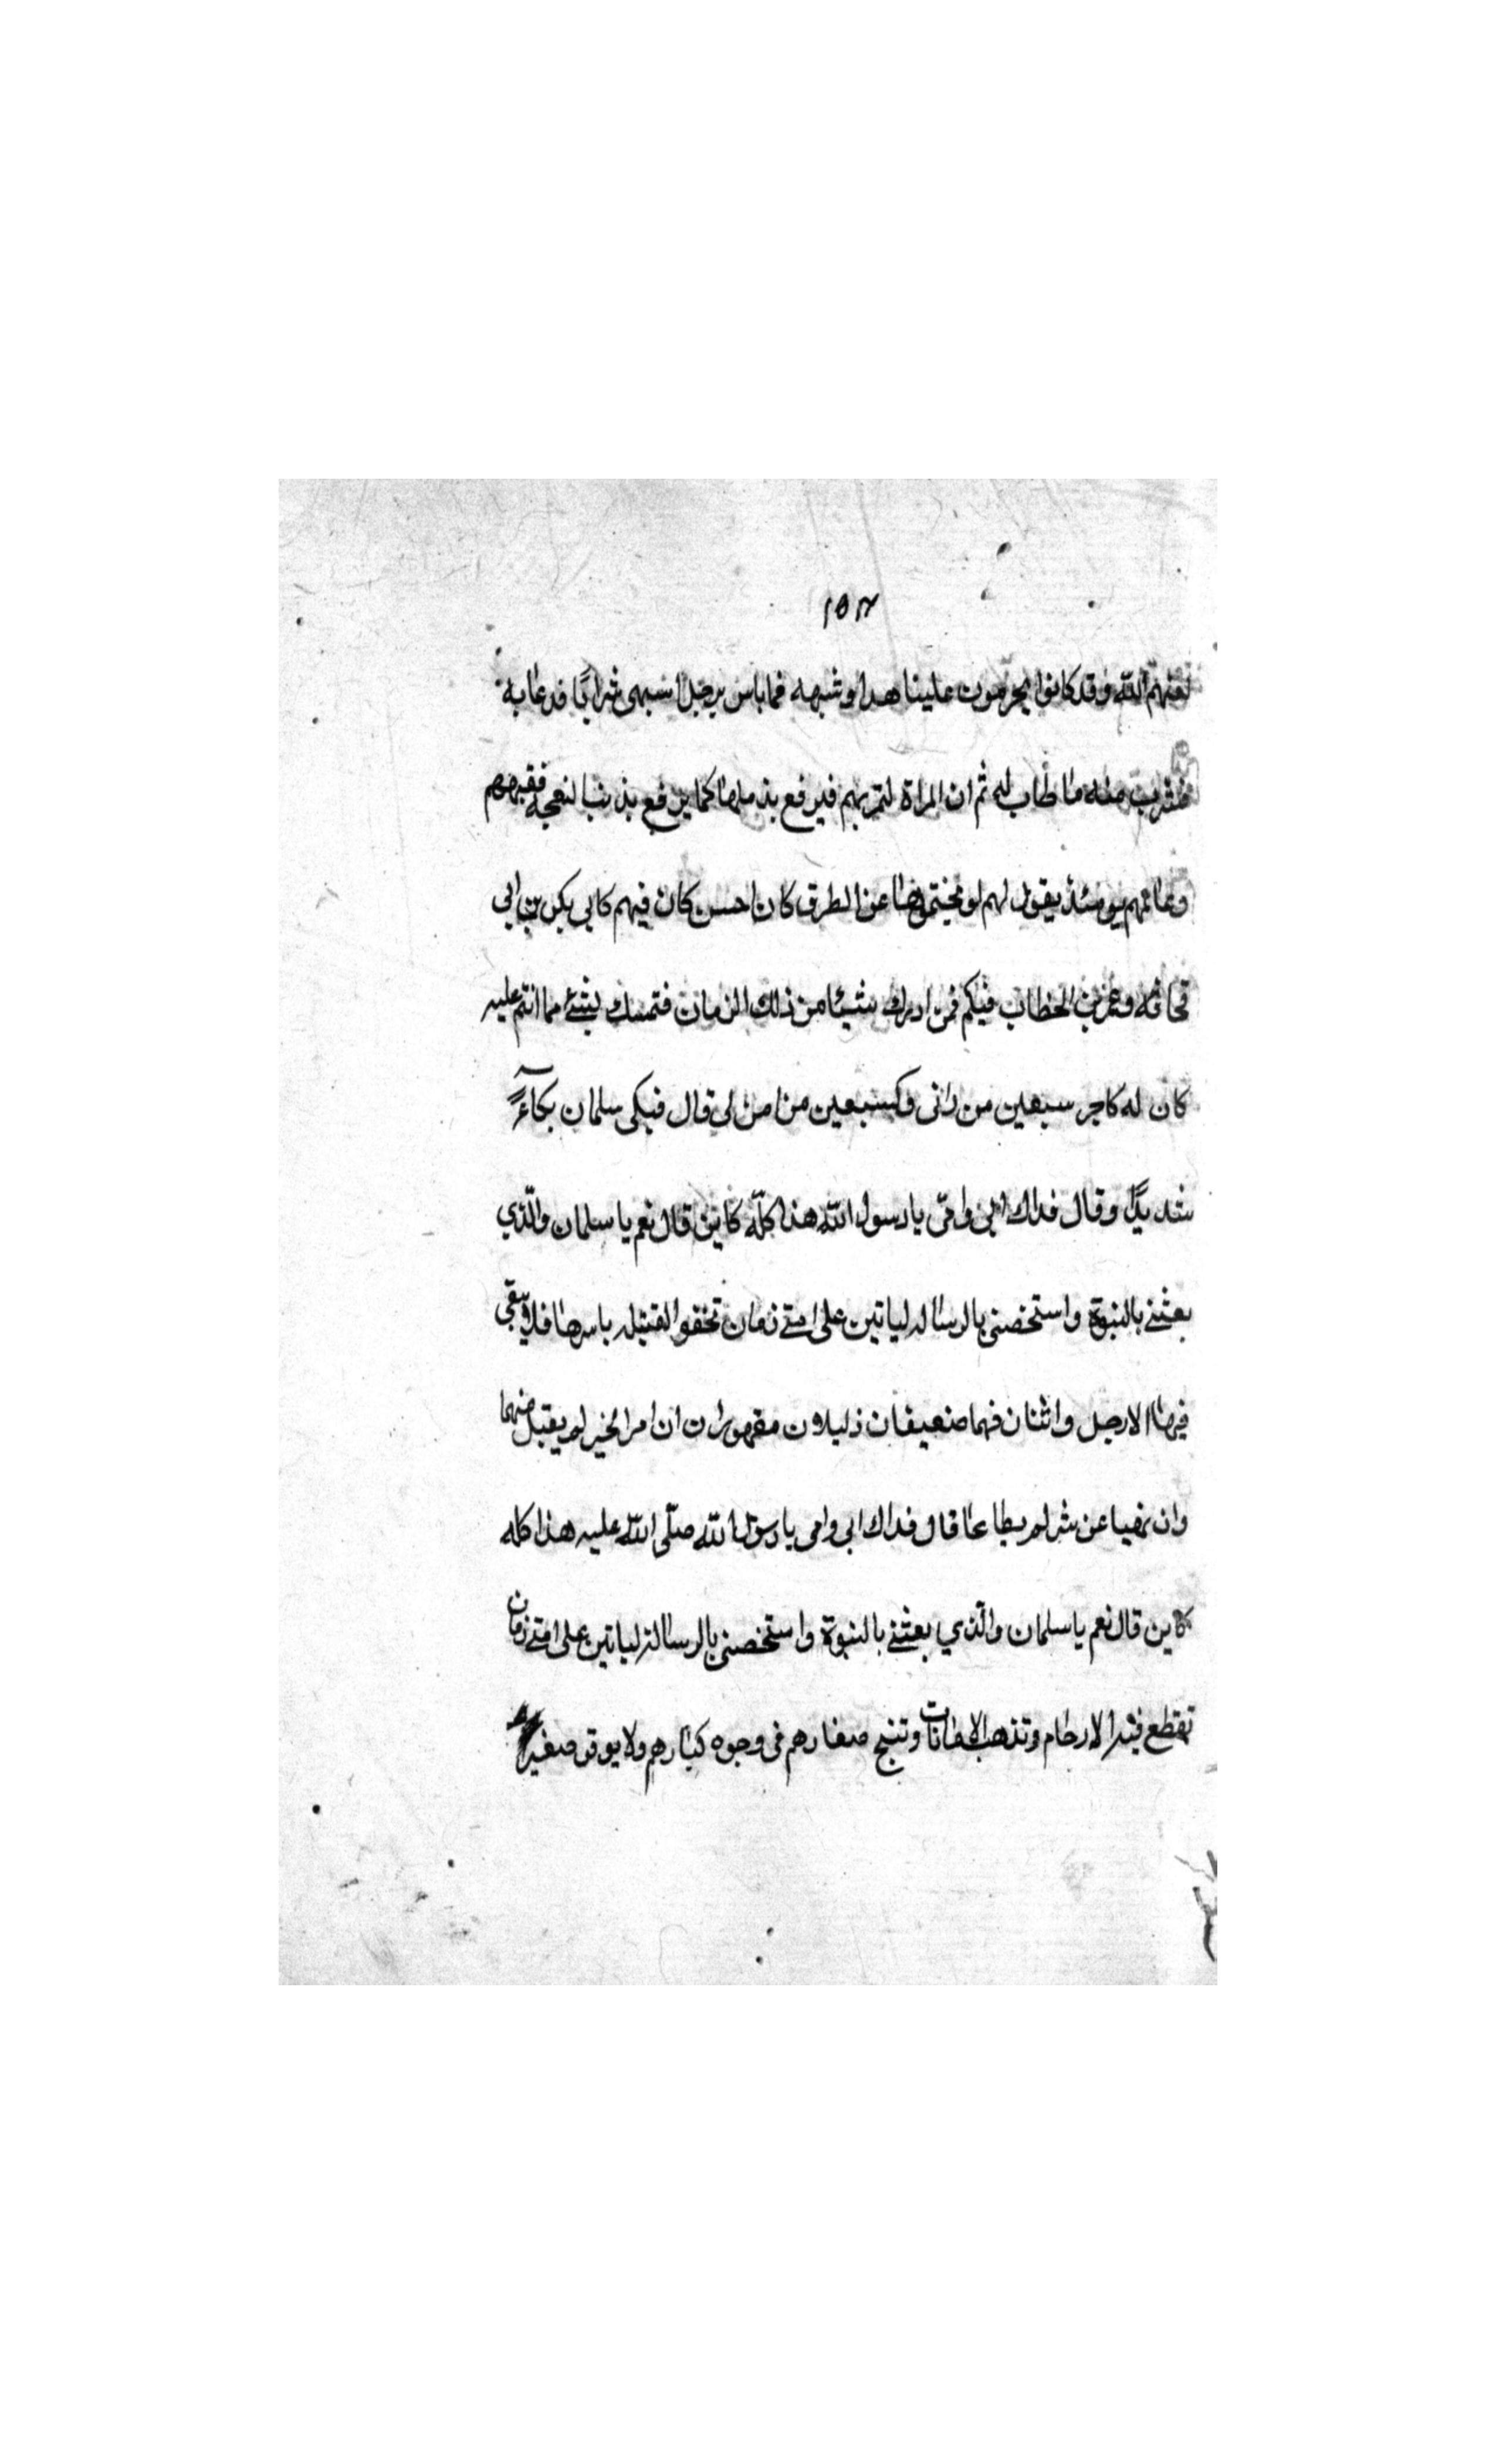 ١٥٢
لعنهم الله وقد كانوا يحرمون علينا هذا وشبهه فما باس برجل اشتهى شرابًا فدعا به
فشرب منه ما طاب له ثم ان المراة لتمر بهم فيرفع بذيلها كما يرفع بذنب النعجة فقيههم
وعالمهم يومئذ يقول لهم لو نحيتموها عن الطرق كان احسن كان فيهم كابي بكر بن ابي
قحافه وعمر بن الخطاب فيكم فمن ادرك شيئا من ذلك الزمان فتمسك بشئ مما انتم عليه
كان له كاجر سبعين من رانى وكسبعين من امن لى قال فبكى سلمان بكاءً
شديدًا وقال فداك ابي وامّي يا رسول الله هذا كلّه كاين قال نعم يا سلمان والّذي
بعثنے بالنبوة واستخصنى بالرساله لياتين على امتے زمان تخفو القبيله باسرها فلا يبقى
فيها الا رجل واثنان فهما ضعيفان ذليلان مقهوران ان امر الخير لم يقبل منهما
وان نهيا عن شر لم يطاعا قال فداك ابى وامى يا رسول الله صلّى الله عليه هذا كله
كاين قال نعم يا سلمان والّذي بعثنے بالنبوة واستخصنى بالرسالة لياتين على امتے زمان
تقطع فيه الارحام وتذهب الامانات وتنبح صغارهم فى وجوه كبارهم ولا يوقر صغير